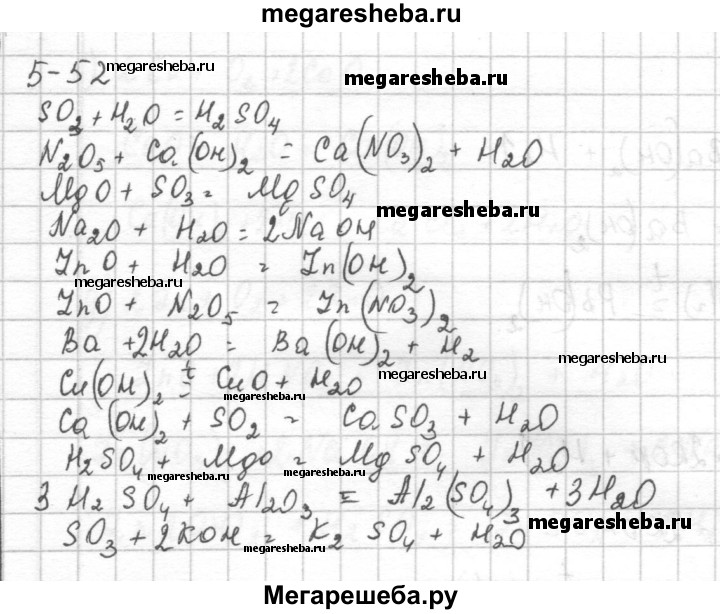 megaresheba.ru
5-52 megaresheba.ru megaresheba.ru
SO3 + H2O = H2SO4
N2O5 + Ca(OH)2 = Ca(NO3)2 + H2O
MgO + SO3 = MgSO4
megaresheba.ru
Na2O + H2O = 2NaOH
ZnO + H2O = Zn(OH)2
megaresheba.ru
ZnO + N2O5 = Zn(NO3)2
Ba + 2H2O = Ba(OH)2 + H2
megaresheba.ru
Cu(OH)2 t= CuO + H2O
megaresheba.ru megaresheba.ru
Ca(OH)2 + SO2 = CaSO3 + H2O
H2SO4 + MgO = MgSO4 + H2O
megaresheba.ru megaresheba.ru
3H2SO4 + Al2O3 = Al2(SO4)3 + 3H2O
SO3 + 2KOH = K2SO4 + H2O
megaresheba.ru megaresheba.ru
Мегарешеба.ру